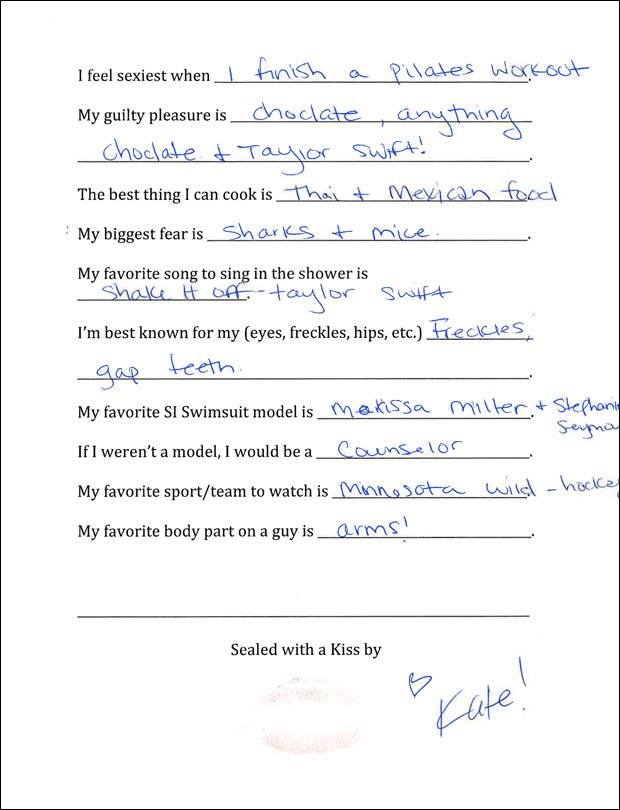 I feel sexiest when I finish a pilates workout.
My guilty pleasure is choclate, anything
choclate + Taylor Swift!.
The best thing I can cook is Thai + Mexican food
My biggest fear is sharks + mice.
My favorite song to sing in the shower is
Shake It off - taylor swift
I'm best known for my (eyes, freckles, hips, etc.) Freckles,
gap teeth.
My favorite SI Swimsuit model is Marissa Miller. + Stephanie
Seymo
If I weren't a model, I would be a Counselor.
My favorite sport/team to watch is Minnesota wild - hockey
My favorite body part on a guy is arms!.
Sealed with a Kiss by
Kate!